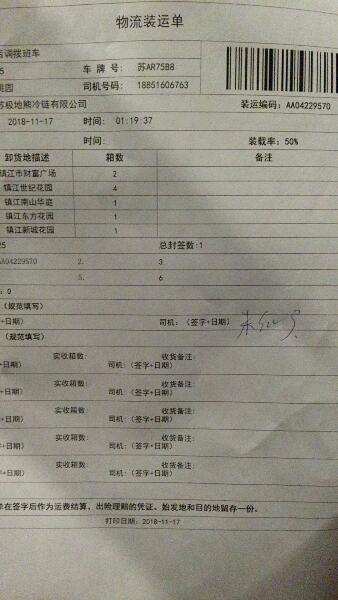 物流装运单
店调拨班车
5 车 牌 号: 苏AR75B8
桃园 司机号码: 18851606763
苏极地熊冷链有限公司 装运编码: AA04229570
2018-11-17 时间: 01:19:37
时间: 装载率: 50%
卸货地描述 箱数 备注
镇江市财富广场 2
镇江世纪花园 4
镇江南山华庭 1
镇江东方花园 1
镇江新城花园 1
25 总封签数:1
AA04229570 2. 3.
5. 6.
: 0
(规范填写)
+日期) 司机: (签字+日期)
(规范填写)
实收箱数: 收货备注:
+日期) 司机: (签字+日期)
实收箱数: 收货备注:
+日期) 司机: (签字+日期)
实收箱数: 收货备注:
+日期) 司机: (签字+日期)
实收箱数: 收货备注:
+日期) 司机: (签字+日期)
实收箱数: 收货备注:
+日期) 司机: (签字+日期)
单在签字后作为运费结算、出险理赔的凭证。始发地和目的地留存一份。
打印日期: 2018-11-17